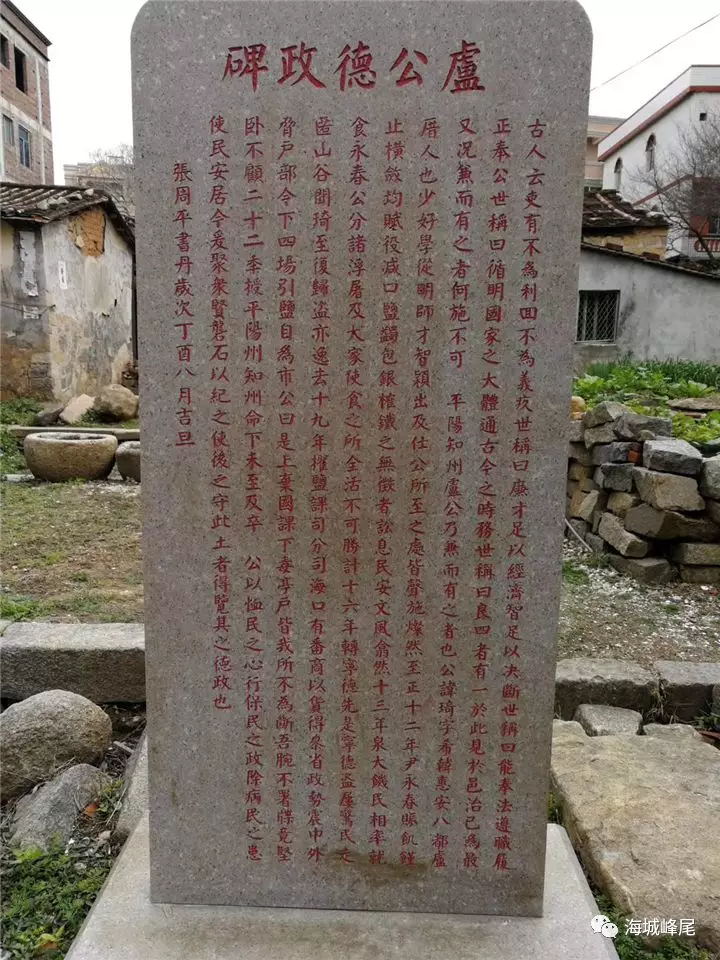 盧公德政碑
古人云吏有不為利回不為義疚世稱曰廉才足以經濟智足以決斷世稱曰能奉法遵職履
正奉公世稱曰循明國家之大體通古今之時務世稱曰良四者有一於此見於邑治已為最
又況兼而有之者何施不可 平陽知州盧公乃兼而有之者也公諱琦字希韓惠安八都盧
厝人也少好學從明師才智穎出及仕公所至之處皆聲施燦然至正十二年尹永春賑飢饉
止橫斂均賦役減口鹽蠲包銀榷鐵之無徵者訟息民安文風翕然十三年泉大饑民相率就
食永春公分諸浮屠及大家使食之所全活不可勝計十六年轉寧德先是寧德盜屢駕民走
匿山谷間琦至復歸盜亦逸去十九年擢鹽課司分司海口有番商以貨得參省政勢震中外
脅戶部令下四場引鹽自為市公曰是上棄國課下毒亭戶皆我所不為斷吾腕不署牒竟堅
卧不顧二十二年授平陽州知州命下未至及卒 公以恤民之心行保民之政除病民之患
使民安居今爰聚衆賢礱石以紀之使後之守此土者得覽其之德政也
張周平書丹歲次丁酉八月吉旦
海城峰尾